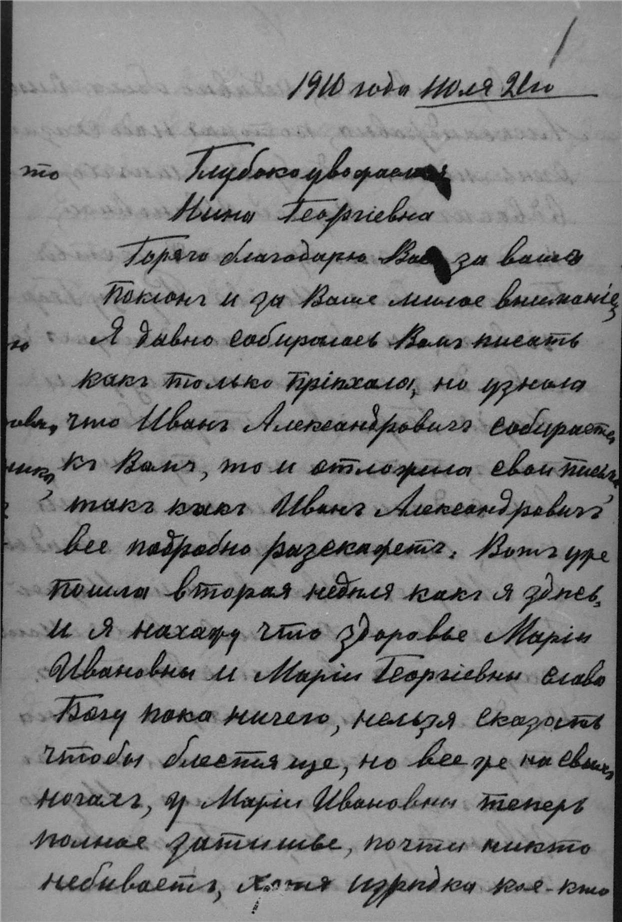 1
1910 года Июля 21го
то
Глубокоуважаемая
Нина Георгіевна
Горячо благодарю Васъ за ваше
поклонъ и за Ваше милое вниманіе,
ю
Я давно собиралась Вамъ писать
какъ только пріѣхала, но узнала
что Иванъ Александровичъ собирается
къ Вамъ, то и отложила свои письма,
такъ какъ Иванъ Александровичъ
все подробно разскажетъ. Вотъ уже
пошла вторая недѣля какъ я здѣсь,
и я нахажу что здоровье Маріи
Ивановны и Маріи Георгіевны слава
Богу пока ничего, нельзя сказать
чтобы блестяще, но все же на своихъ
ногахъ, у Маріи Ивановны теперь
полное затишье, почти никто
небываетъ, хотя изрѣдка кое-кто